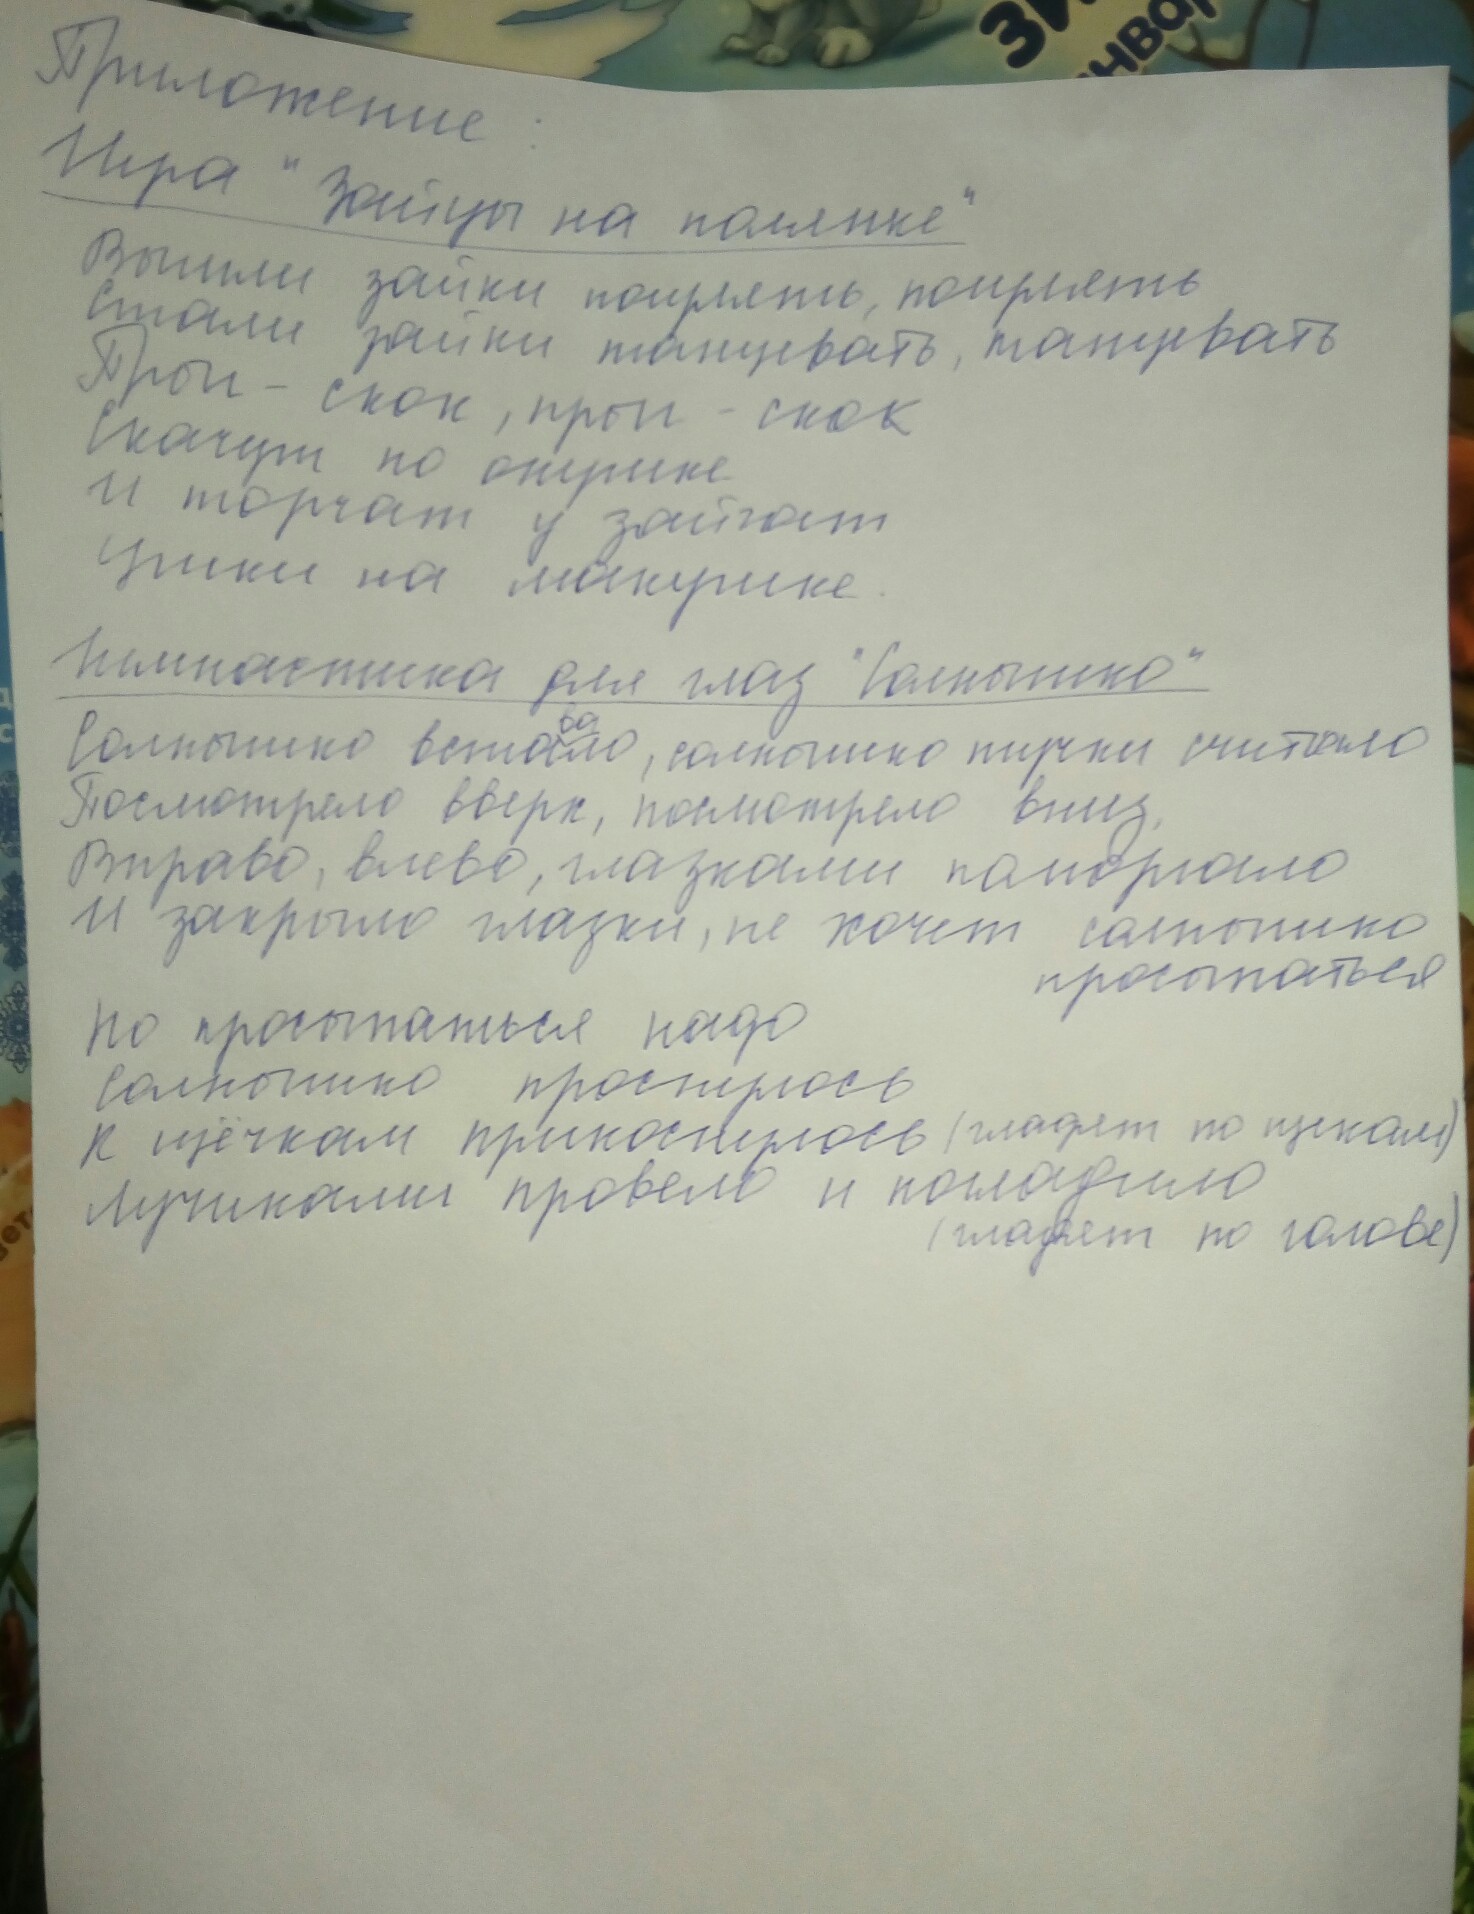 ЗИ
нвар
Приложение:
Игра "Зайцы на полянке"
Вышли зайки погулять, погулять
Стали зайки танцевать, танцевать
Прыг - скок, прыг - скок
Скачут по опушке
И торчат у зайчат
Ушки на макушке.
Гимнастика для глаз "Солнышко"
Солнышко вставало, солнышко тучки считало
Посмотрело вверх, посмотрело вниз,
Вправо, влево, глазками поморгало
И закрыло глазки, не хочет солнышко
просыпаться
Но просыпаться надо
Солнышко проснулось
К щёчкам прикоснулось (гладят по щекам)
Лучиками провело и погладило
(гладят по голове)